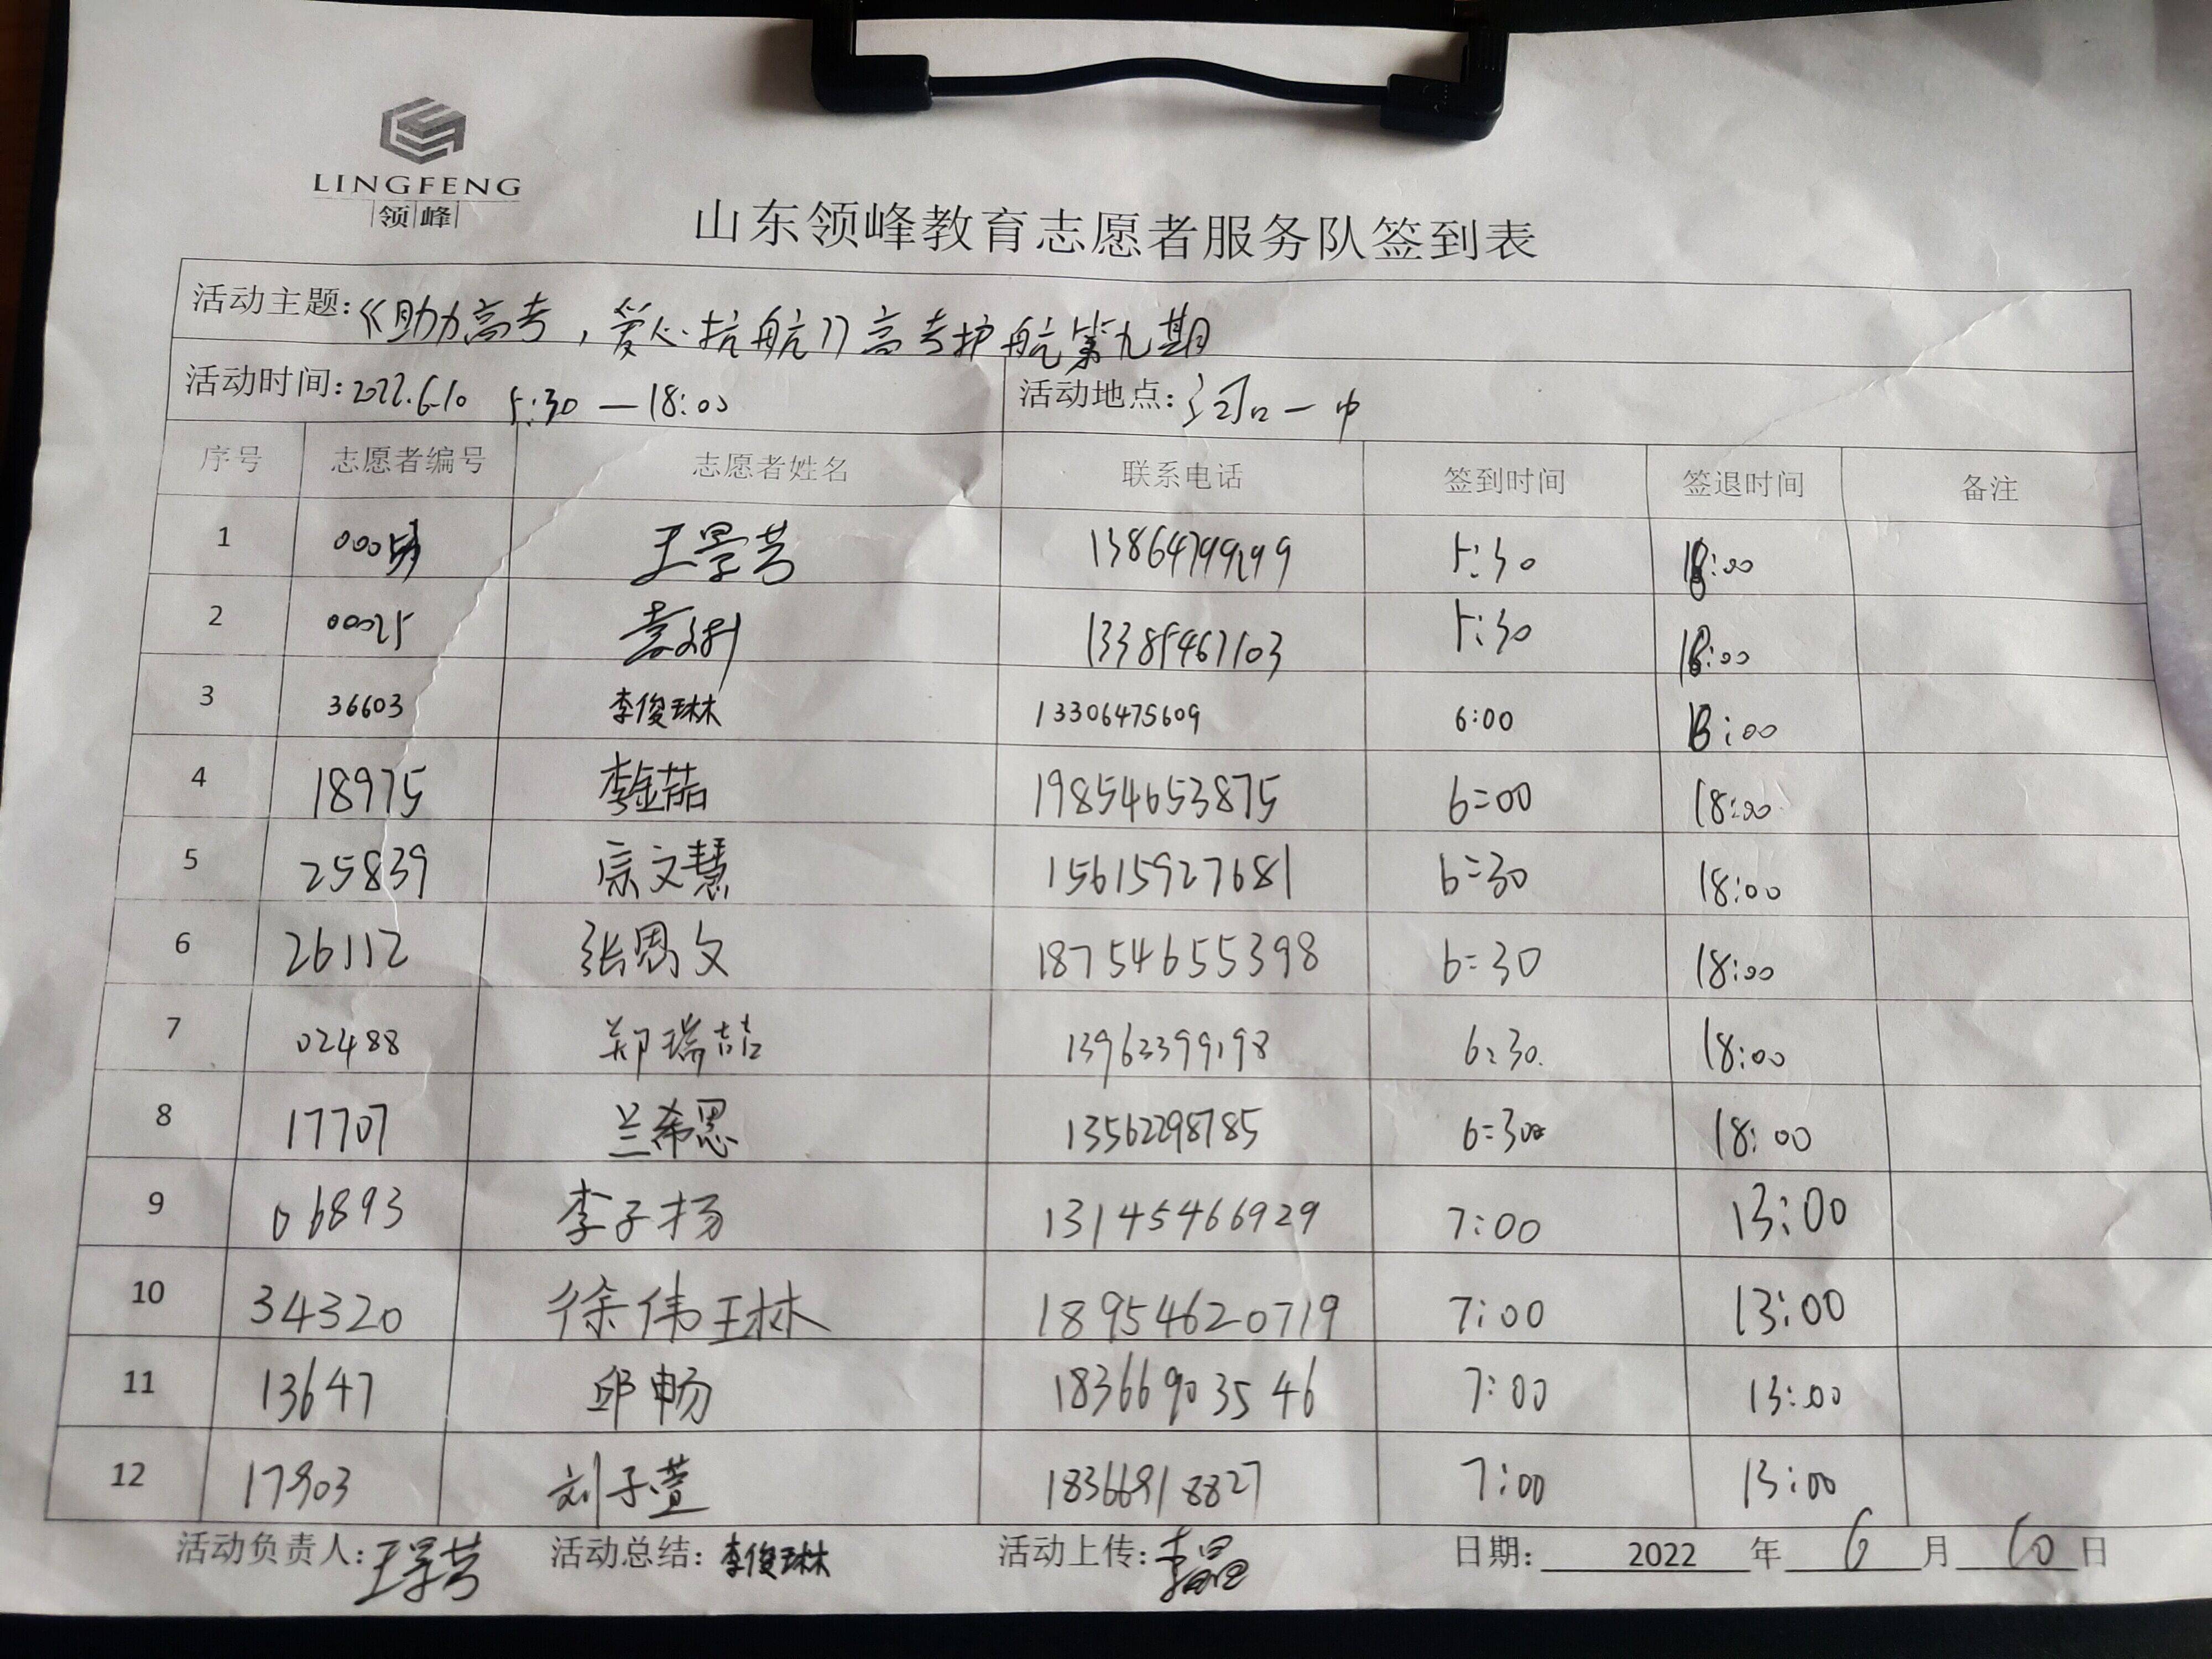 LINGFENG
领峰
山东领峰教育志愿者服务队签到表
活动主题:《助力高考,爱心抗航》高考护航第九期
活动时间:2022.6.10 5:30—18:00 活动地点:河口一中
序号 志愿者编号 志愿者姓名 联系电话 签到时间 签退时间 备注
1 王景芳 13864799299 5:30 18:00
2 00025 13385467103 5:30 18:00
3 36603 李俊琳 13306475609 6:00 18:00
4 18975 李金喆 19854653875 6:00 18:00
5 25839 宗文慧 15615927681 6:30 18:00
6 26112 张周文 18754655398 6:30 18:00
7 02488 郑瑞喆 13963399198 6:30 18:00
8 17707 兰希恩 13562298785 6:30 18:00
9 06893 李子扬 13145466929 7:00 13:00
10 34320 徐伟琳 18954620719 7:00 13:00
11 13647 邱畅 18366903546 7:00 13:00
12 17903 刘子萱 18366918827 7:00 13:00
活动负责人:王景芳 活动总结:李俊琳 活动上传: 日期: 2022 年 6 月 10 日